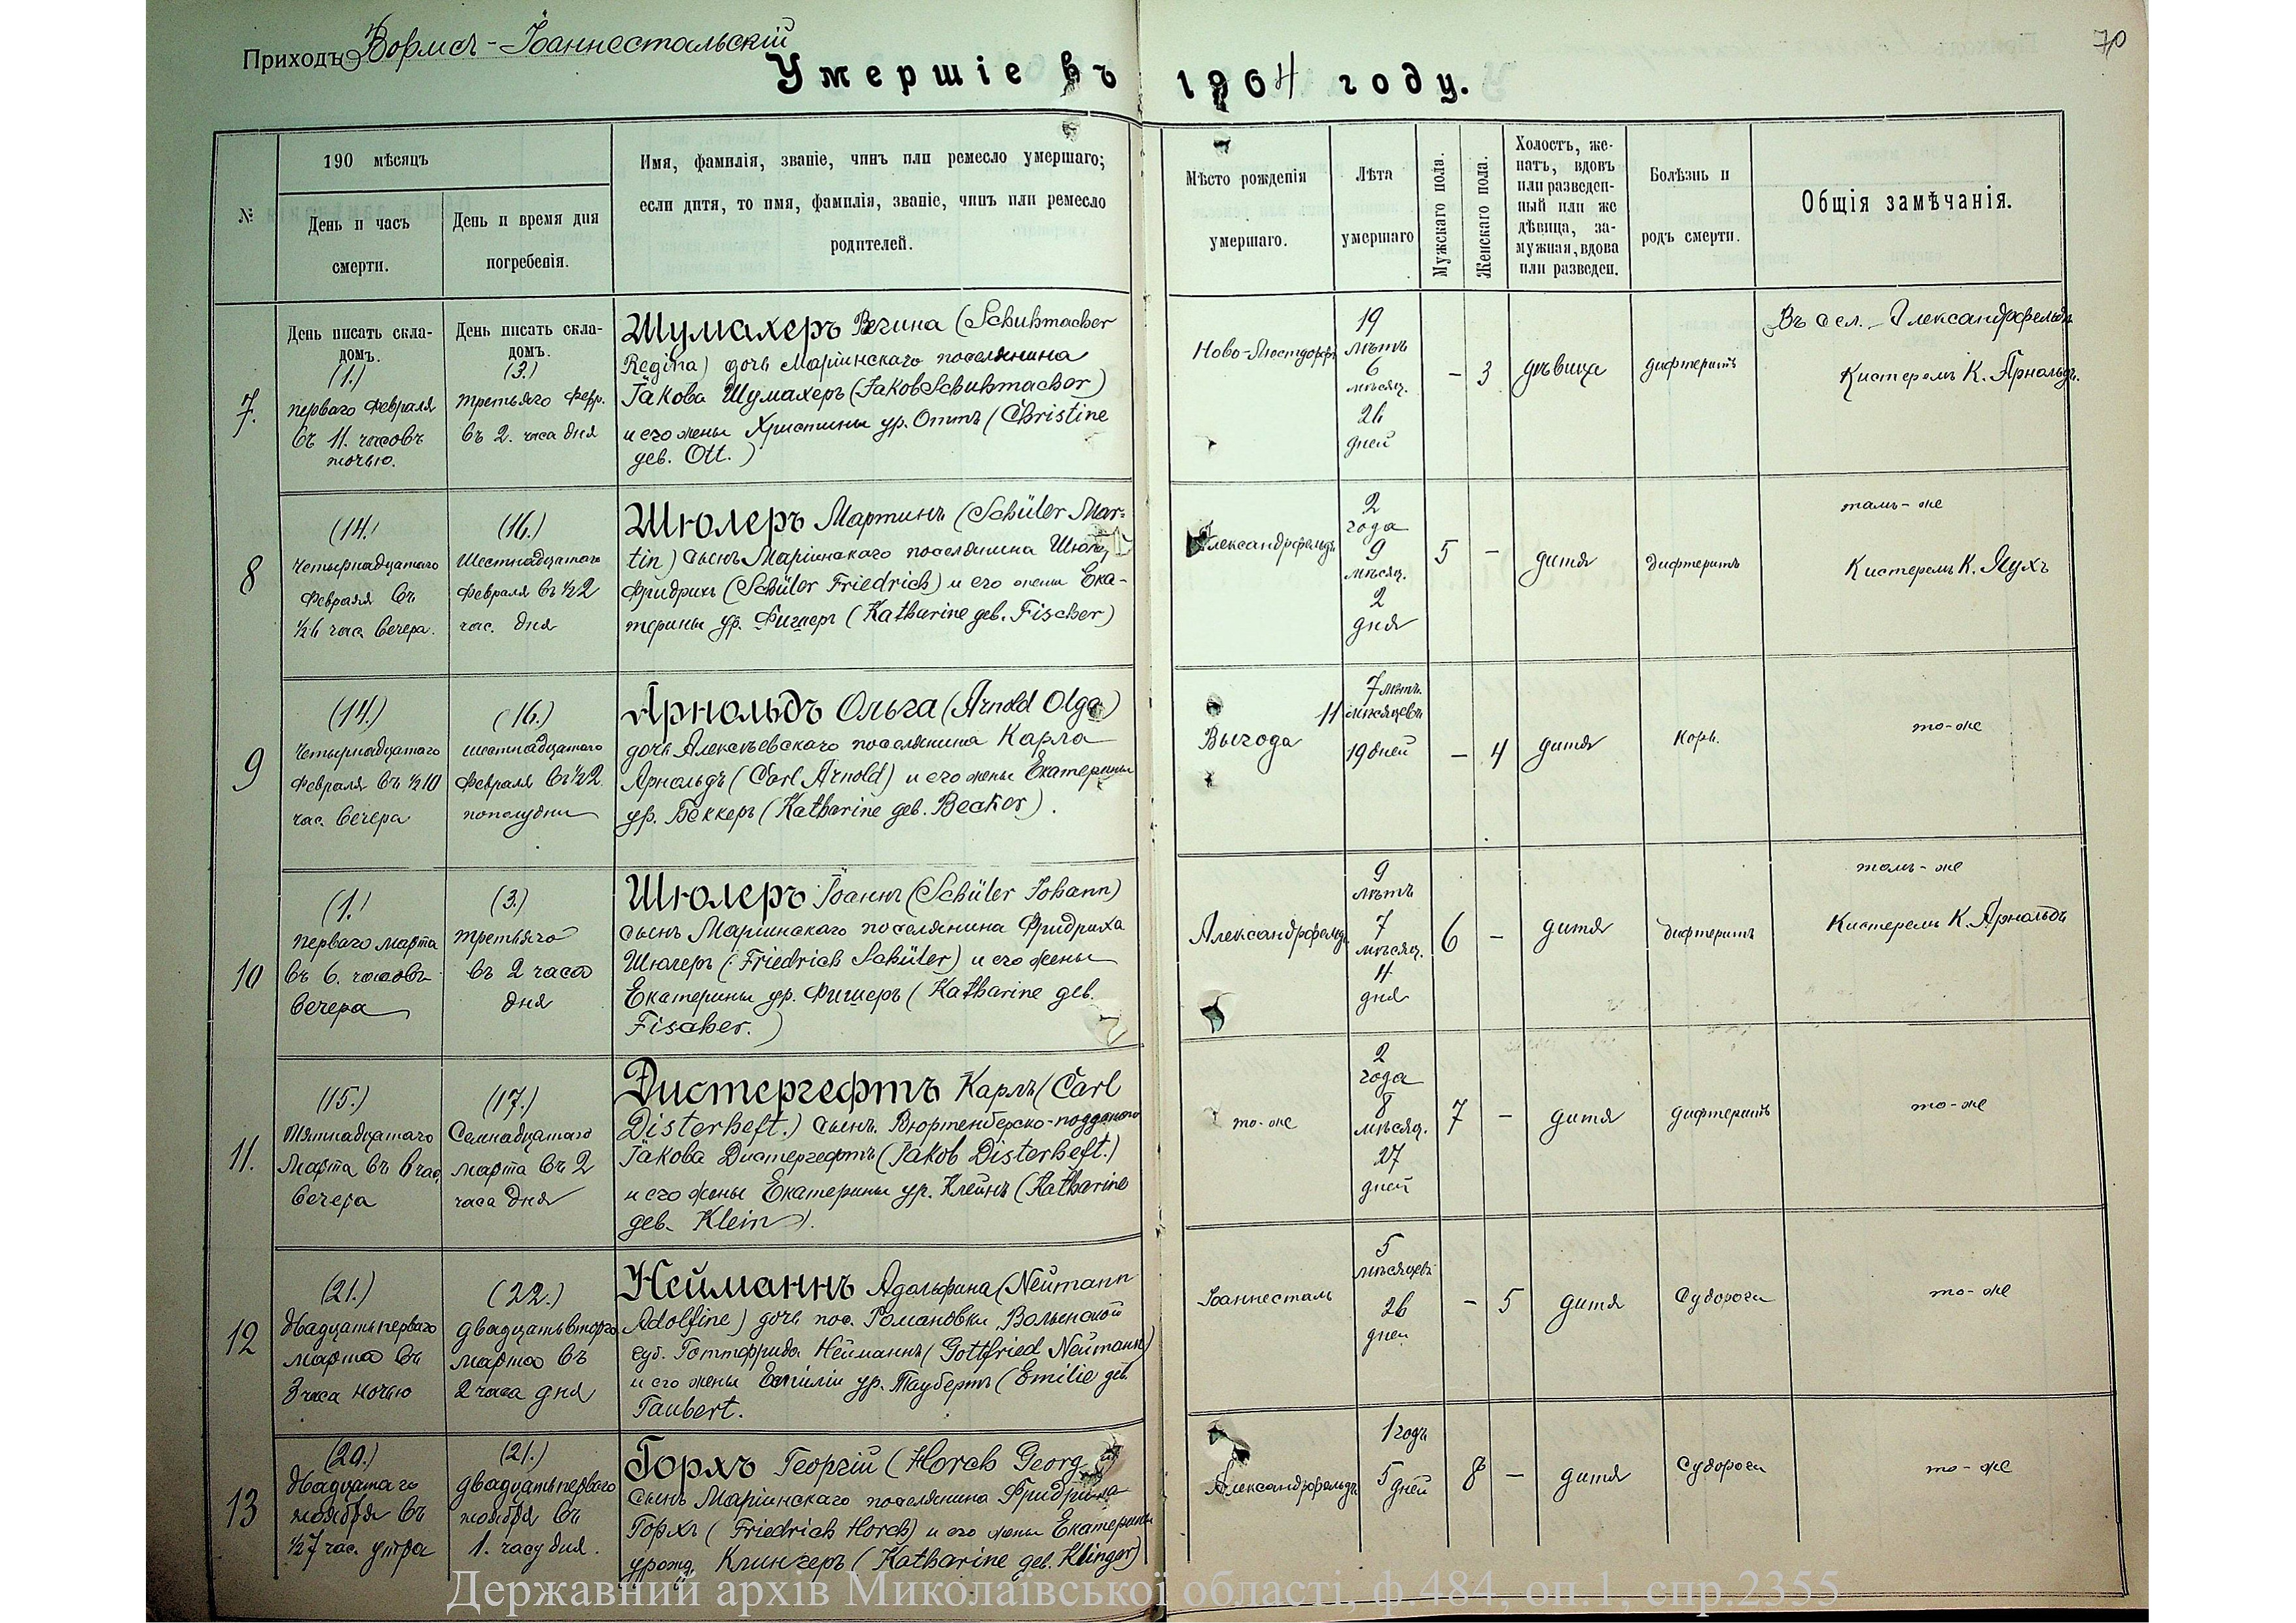 Приходъ Вормсъ-Іоаннестальскій
70
Умершіе въ 1904 году.
№
190 мѣсяцъ
День и часъ
смерти.
День и время дня
погребенія.
Имя, фамилія, званіе, чинъ или ремесло умершаго;
если дитя, то имя, фамилія, званіе, чинъ или ремесло
родителей.
Мѣсто рожденія
умершаго.
Лѣта
умершаго
Мужскаго пола.
Женскаго пола.
Холостъ, же-
натъ, вдовъ
или разведен-
ный или же
дѣвица, за-
мужная, вдова
или разведен.
Болѣзнь и
родъ смерти.
Общія замѣчанія.
7.
День писать скла-
домъ.
(1.)
перваго Февраля
въ 11. часовъ
ночью.
День писать скла-
домъ.
(3.)
третьяго Февр.
въ 2. часа дня
Шумахеръ Регина (Schuhmacher
Regina) дочь Маріинскаго поселянина
Іакова Шумахеръ (Jakob Schuhmacher)
и его жены Христины ур. Оттъ (Christine
geb. Ott.)
Ново-Люстдорфъ
19
лѣтъ
6
мѣсяц.
26
дней
-
3
дѣвица
дифтеритъ
Въ сел. Александрфельдъ
Кистеремъ К. Арнольдъ.
8
(14.)
Четырнадцатаго
Февраля въ
½6 час. вечера.
(16.)
Шестнадцатаго
Февраля въ ½2
час. дня
Шюлеръ Мартинъ (Schüler Mar-
tin) сынъ Маріинскаго поселянина Шюлеръ
Фридрихъ (Schüler Friedrich) и его жены Ека-
терины ур. Фишеръ (Katharine geb. Fischer)
Александрфельдъ
2
года
9
мѣсяц.
2
дня
5
-
дитя
дифтеритъ
тамъ-же
Кистеремъ К.
9
(14.)
Четырнадцатаго
Февраля въ ½10
час. вечера
(16.)
шестнадцатаго
Февраля въ ½2
пополудни
Арнольдъ Ольга (Arnold Olga)
дочь Алексѣевскаго поселянина Карла
Арнольдъ (Carl Arnold) и его жены Екатерины
ур. Беккеръ (Katharine geb. Becker).
Выгода
7 лѣтъ.
11 мѣсяцевъ
19 дней
-
4
дитя
Корь.
то-же
10
(1.)
перваго марта
въ 6. часовъ
вечера
(3.)
третьяго
въ 2 часа
дня
Шюлеръ Іоаннъ (Schüler Johann)
сынъ Маріинскаго поселянина Фридриха
Шюлеръ (Friedrich Schüler) и его жены
Екатерины ур. Фишеръ (Katharine geb.
Fischer.)
Александрфельдъ
9
лѣтъ
7
мѣсяц.
4
дня
6
-
дитя
дифтеритъ
тамъ-же
Кистеремъ К. Арнольдъ
11.
(15.)
Пятнадцатаго
Марта въ 6 час.
вечера
(17.)
Семнадцатаго
марта въ 2
часа дня
Дистергефтъ Карлъ (Carl
Disterheft.) сынъ Вюртенберско-подданого
Іакова Дистергефтъ (Jakob Disterheft.)
и его жены Екатерины ур. Клейнъ (Katharine
geb. Klein).
то-же
2
года
8
мѣсяц.
27
дней
7
-
дитя
дифтеритъ
то-же
12
(21.)
двадцатьперваго
марта въ
3 часа ночью
(22.)
двадцатьвтораго
марта въ
2 часа дня
Нейманнъ Адольфина (Neumann
Adolfine) дочь пос. Романовки Волынской
губ. Готтфрида Нейманнъ (Gottfried Neumann)
и его жены Эмиліи ур. Таубертъ (Emilie geb.
Taubert.
Іоаннесталь
5
мѣсяцевъ
26
дней
-
5
дитя
Судороги
то-же
13
(20.)
двадцатаго
ноября въ
½7 час. утра
(21.)
двадцатьперваго
ноября въ
1. часу дня.
Горхъ Георгій (Horch Georg)
сынъ Маріинскаго поселянина Фридриха
Горхъ (Friedrich Horch) и его жены Екатерины
урожд. Клингеръ (Katharine geb. Klinger)
Александрфельдъ
1 годъ
5 дней
8
-
дитя
Судороги
то-же
Державний архів Миколаївської області, ф.484, оп.1, спр.2355